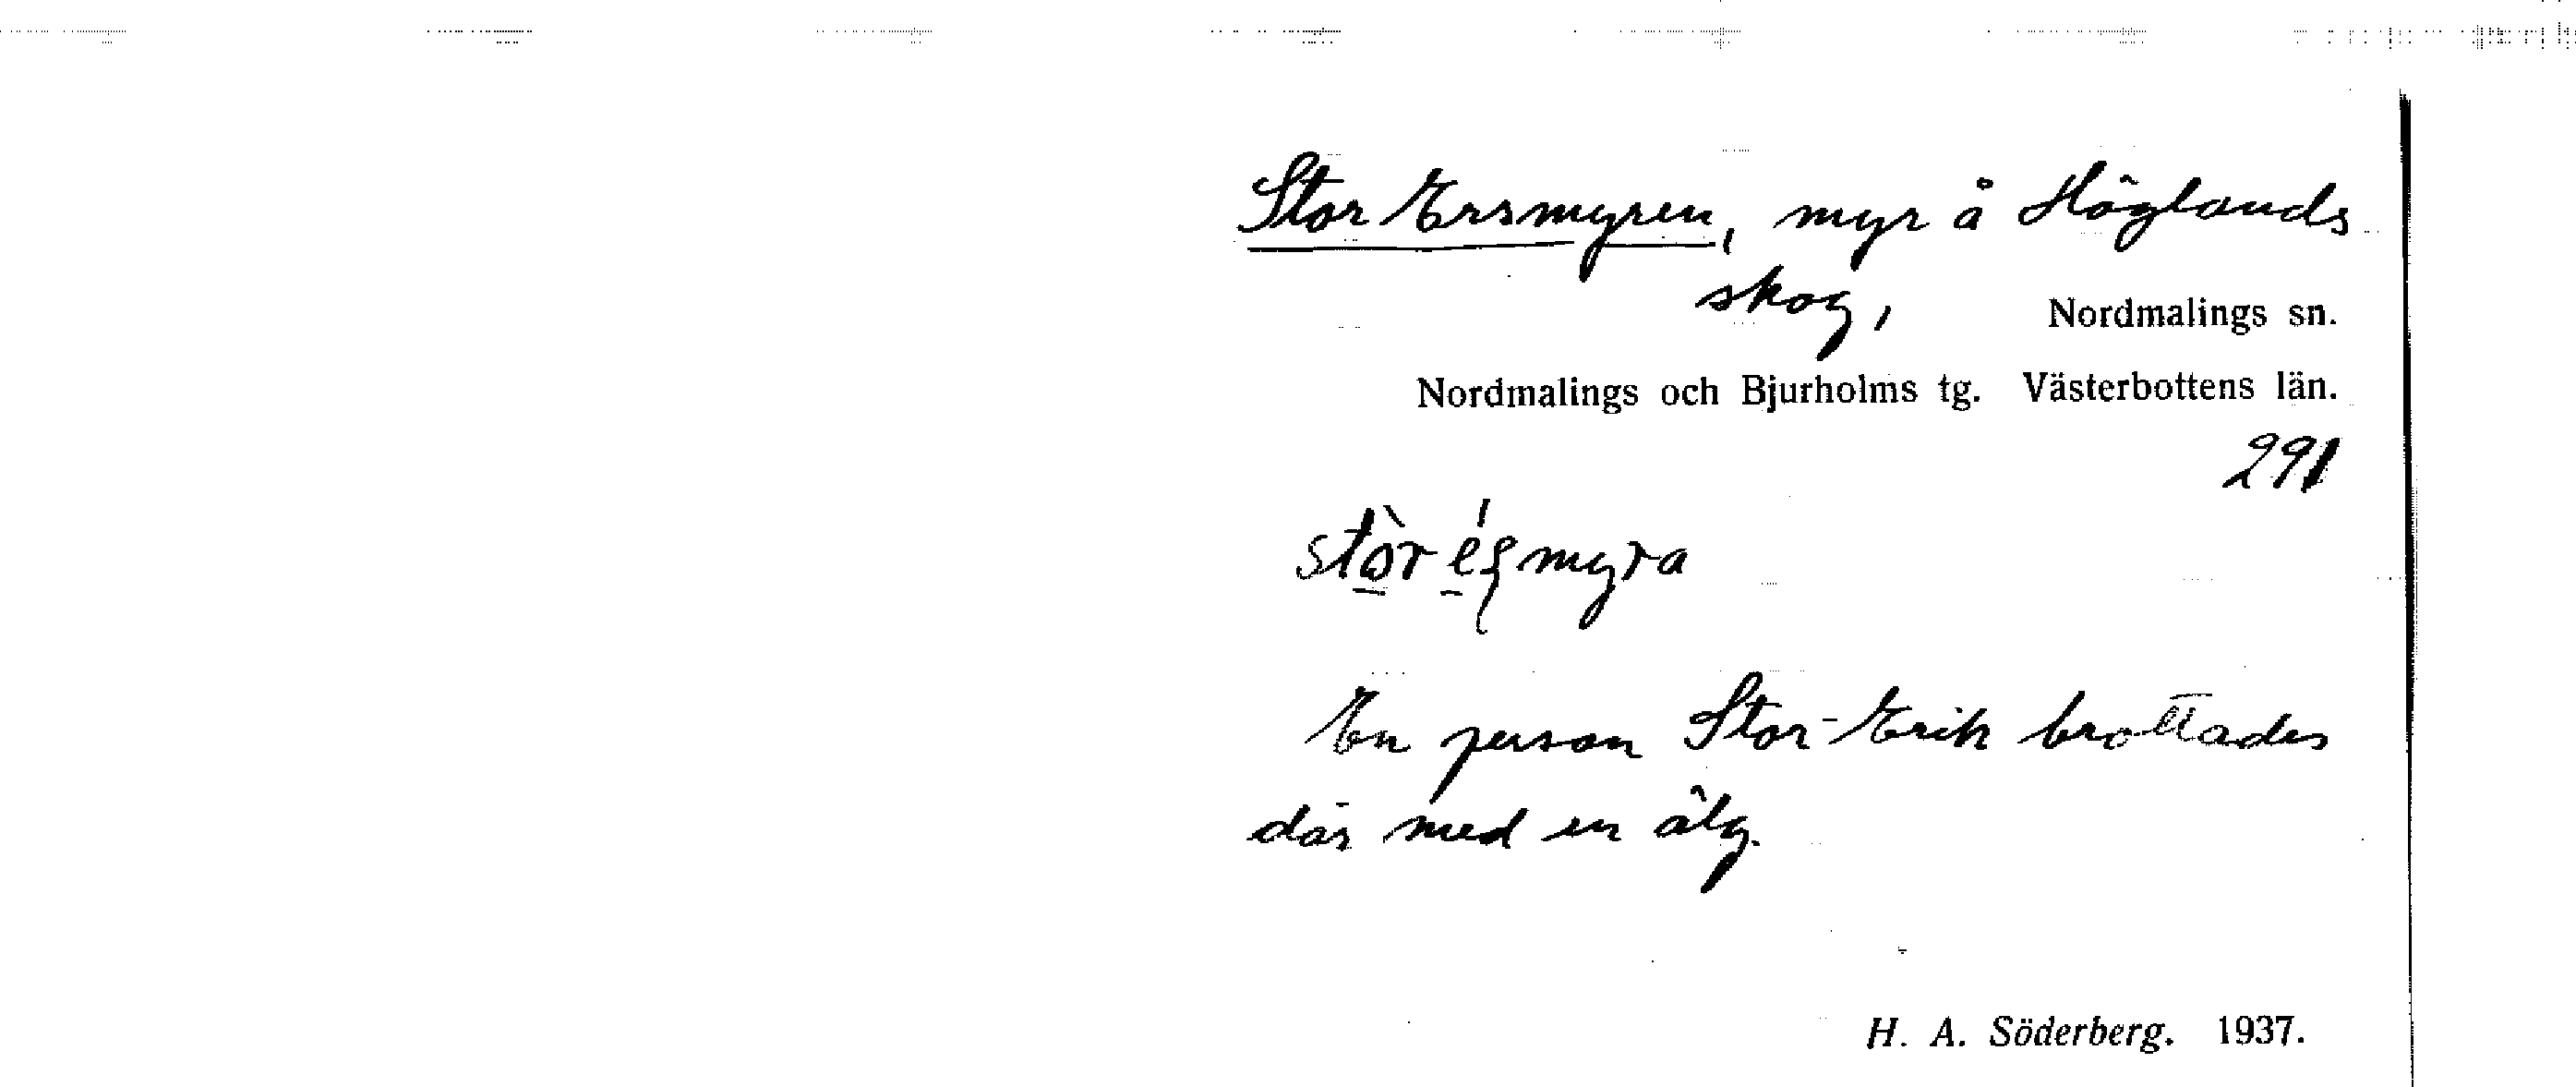 Stor Ersmyren, myr å Höglands
skog, Nordmalings sn.
Nordmalings och Bjurholms tg. Västerbottens län.
291
stòr éʂmyra
En person Stor-Erik brottades
där med en älg.
H. A. Söderberg. 1937.